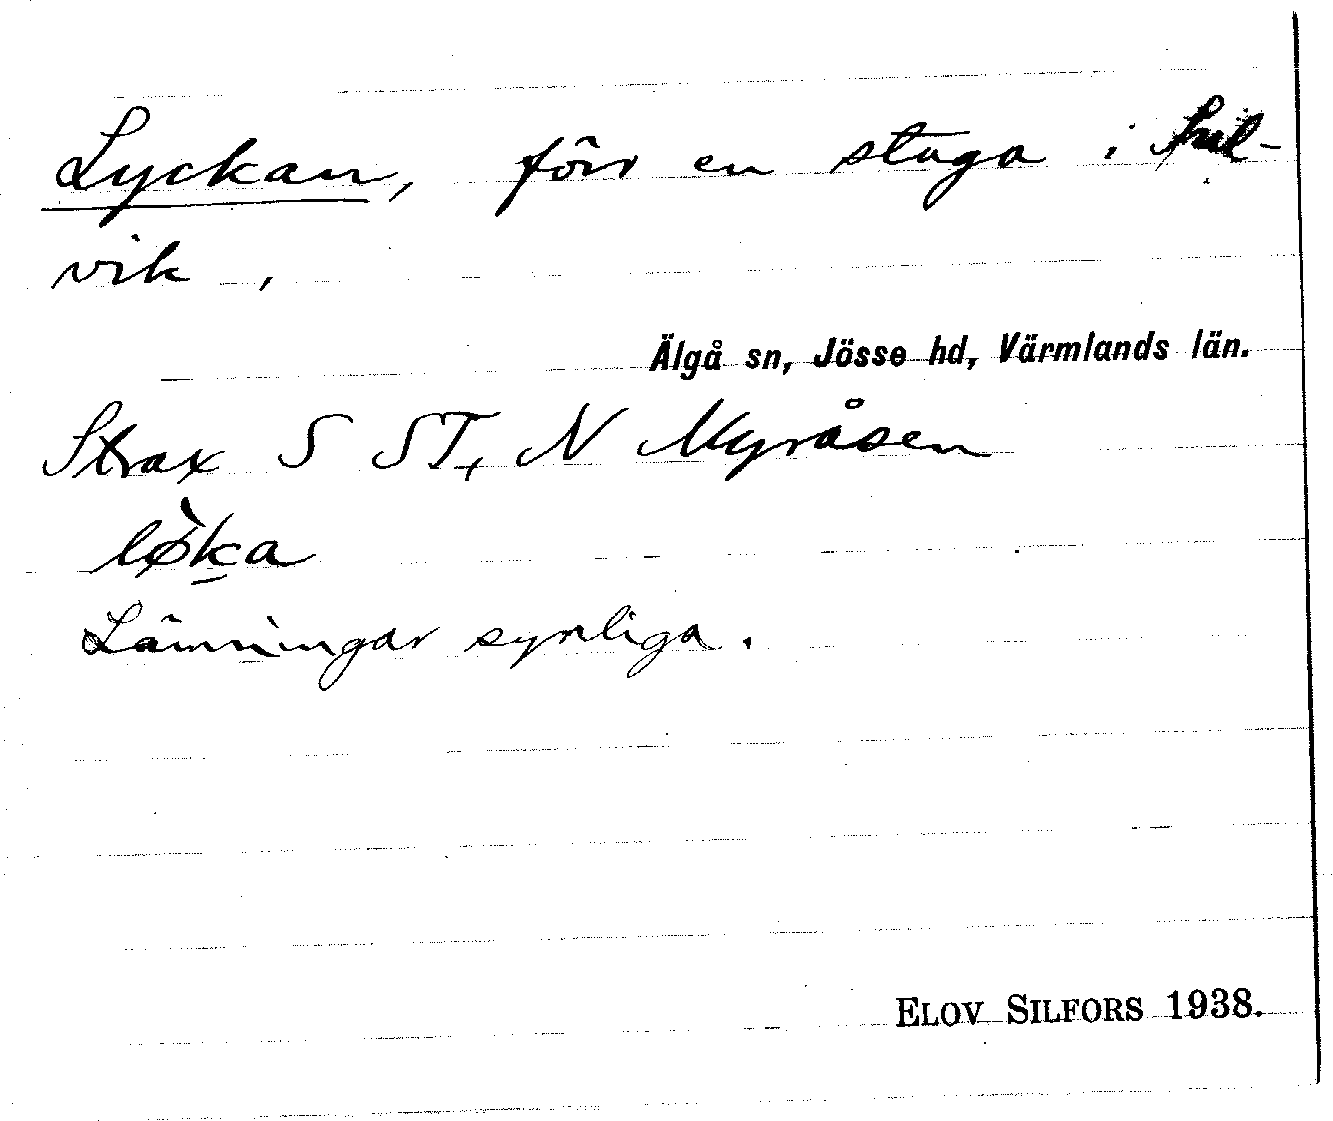 Lyckan, förr en stuga i Sul-
vik,
Älgå sn, Jösse hd, Värmlands län.
Strax S ST, N Myråsen
lø̀ka
Lämningar synliga.
ELOV SILFORS 1938.